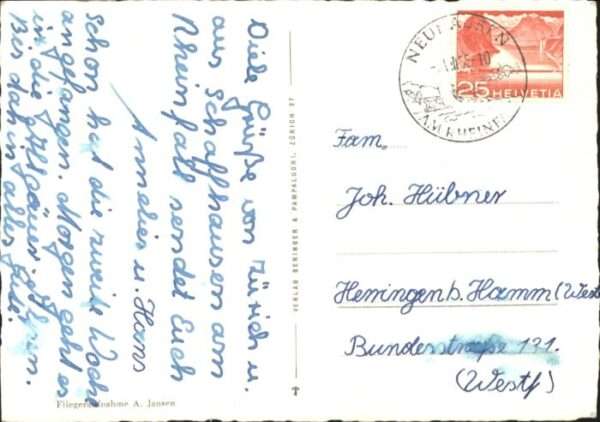 Viele Grüße von Zürich u.
aus Schaffhausen am
Rheinfall sendet Euch
Annelies u. Hans
Schon hat die zweite Woche
angefangen. Morgen geht es
in die
Bis dahin alles Gute.
Fliegeraufnahme A. Jansen
VERLAG BERINGER & PAMPALUCHI, ZÜRICH 27
NEUHAUSEN
AM RHEINFALL
25 HELVETIA
Fam.
Joh. Hübner
Herringen b. Hamm (West
Bundesstraße 131.
(Westf)